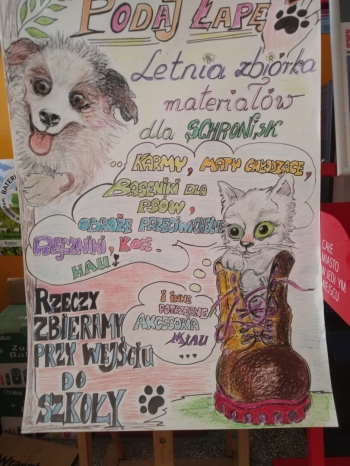 PODAJ ŁAPĘ
Letnia zbiórka
materiałów
dla SCHRONISK
.. KARMY, MATY CHŁODZĄCE,
BASENIKI DLA
PSÓW,
OBROŻE PRZECIWPCHELNE
RĘCZNIKI, KOCE.
HAU!
I INNE
POTRZEBNE
AKCESORIA
MIAU
...
RZECZY
ZBIERAMY
PRZY WEJŚCIU
DO
SZKOŁY
CAŁE
MIASTO
W JEDNYM
MIEJSCU